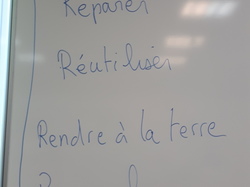 Réparer
Réutiliser
Rendre à la terre